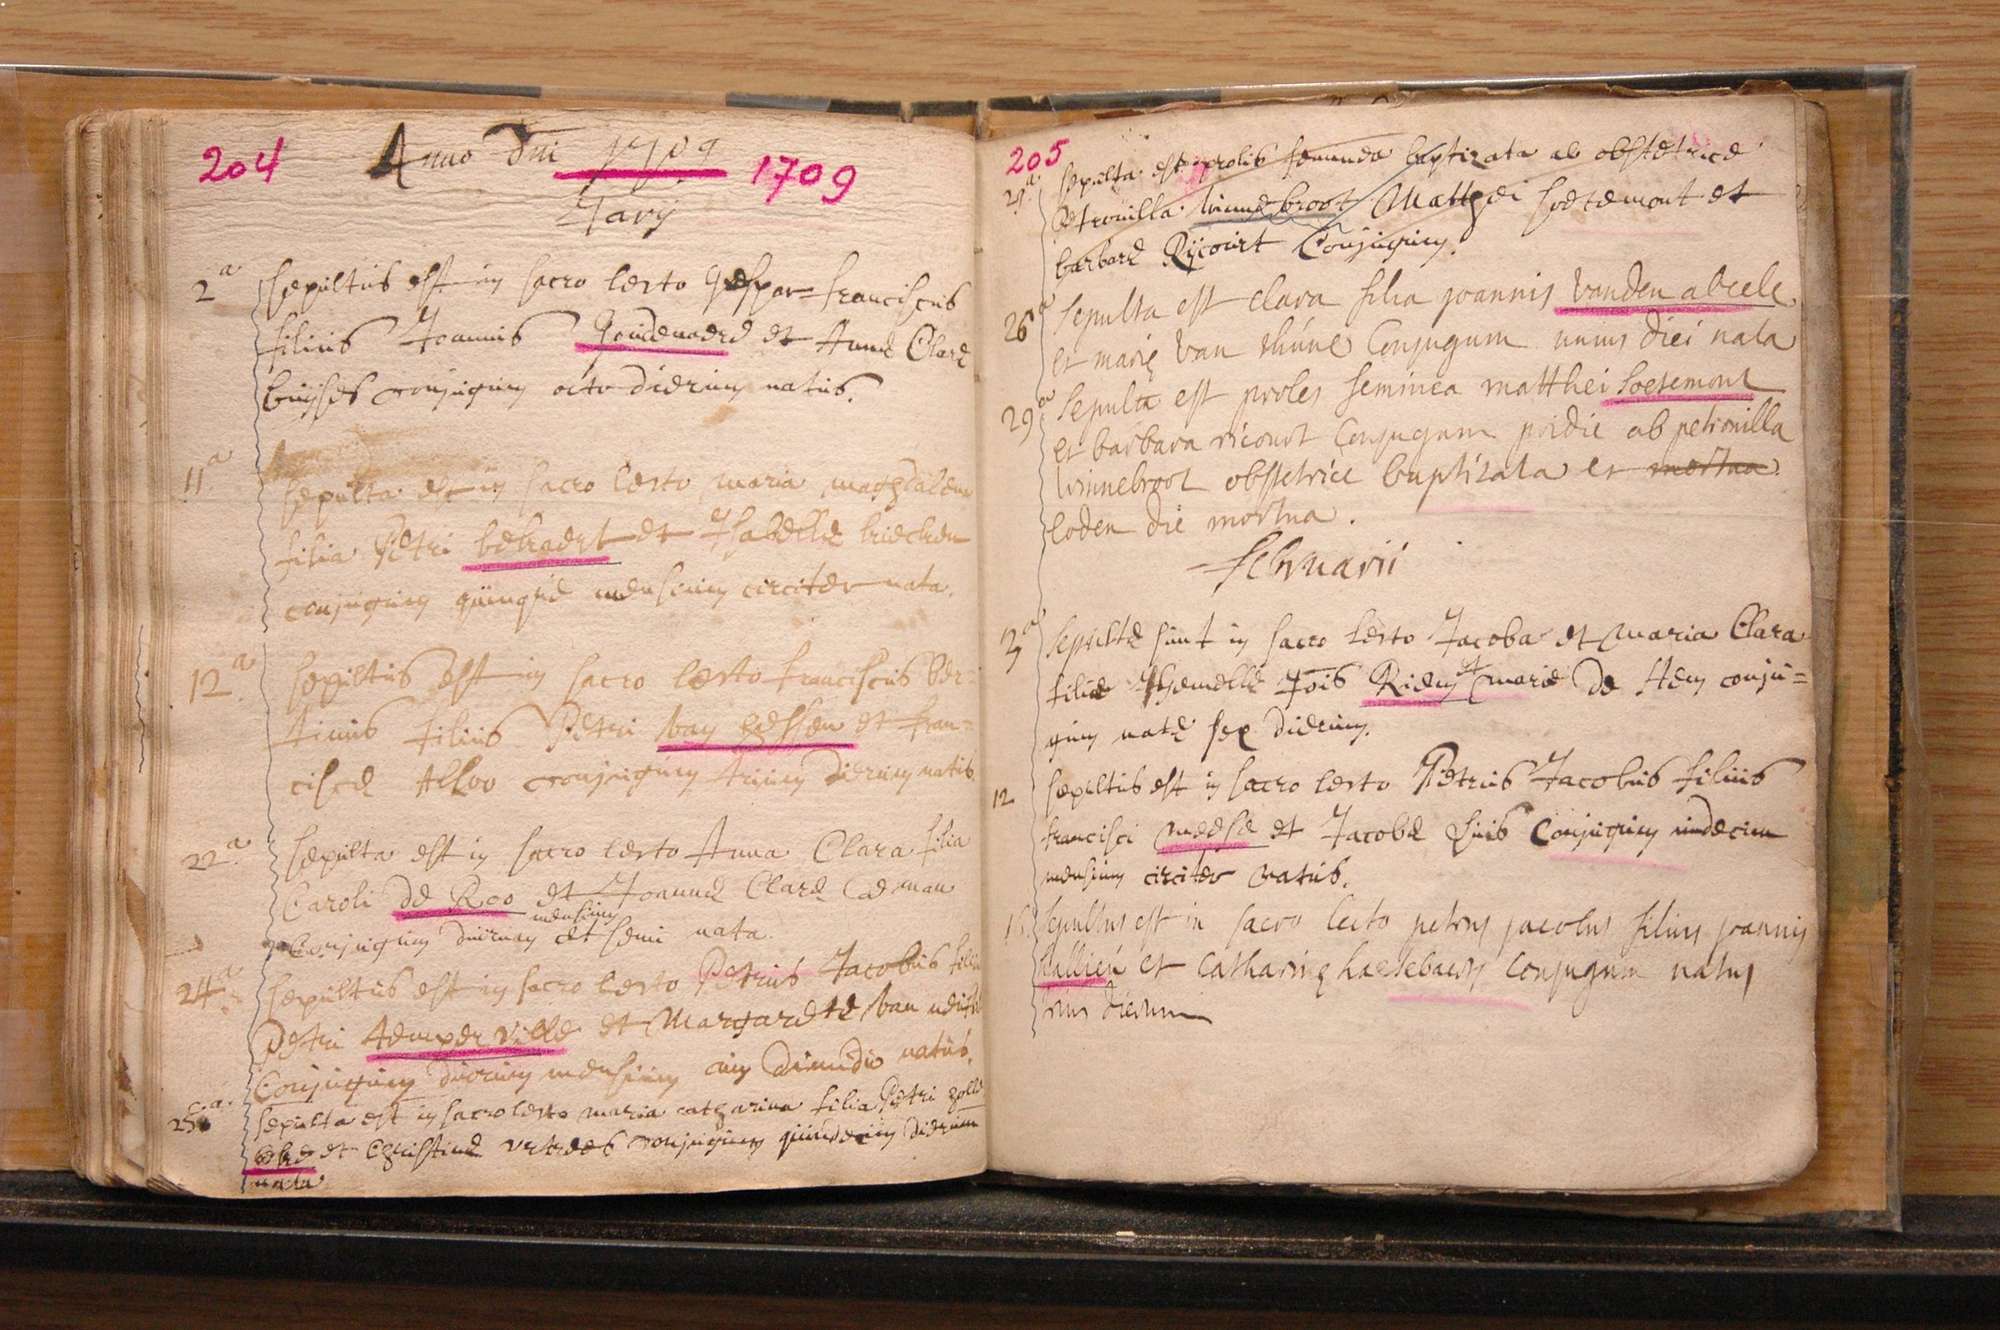 204
Anno Dni 1709
1709
Jarij
2a
sepultus est in sacro lecto Jespar=franciscus
filius Joannis et Annæ Claræ
buijses conjugum octo dierum natus.
11a
sepulta est in sacro lecto maria magdalena
filia Petri bekaert et Isabellæ
conjugum quinque mensium circiter nata.
12a
sepultus est in sacro lecto franciscus Ber=
tinus filius Petri van hessen et fran=
ciscæ conjugum trium dierum natus
22a
sepulta est in sacro lecto Anna Clara filia
Caroli de Roo et Joannæ Claræ Caeman
mensium
Conjugum duorum et semi nata.
24a
sepultus est in sacro lecto Petrus Jacobus
Petri temperville et Margaretæ van
Conjugum duorum mensium cum dimidio natus.
25a
sepulta est in sacro lecto maria catharina filia Petri
et Christinæ conjugum quindecim dierum
nata
205
sepulta est prolis feminea baptizata ab obstetrice
Petronilla winnebroot Matthei soetemont et
barbaræ Rijcourt Conjugum.
26a
sepulta est clara filia joannis vanden abeele
et marię van thune Conjugum unius diei nata
29a
sepulta est proles feminea matthei soetemont
et barbara ricourt conjugum pridie ab petronilla
winnebroot obstetrice baptizata et mortua
eoden die mortua.
februarii
3a
sepultæ sunt in sacro lecto Jacoba et maria Clara
filiæ gemellæ Jois Riem et mariæ De Hem conju=
gum natæ sex dierum.
12
sepultus est in sacro lecto Petrus Jacobus filius
francisci meese et Jacobæ conjugum undecim
mensium circiter natus.
sepultus est in sacro lecto petrus jacobus filius joannis
et catharinę haesebaert conjugum natus
dierum